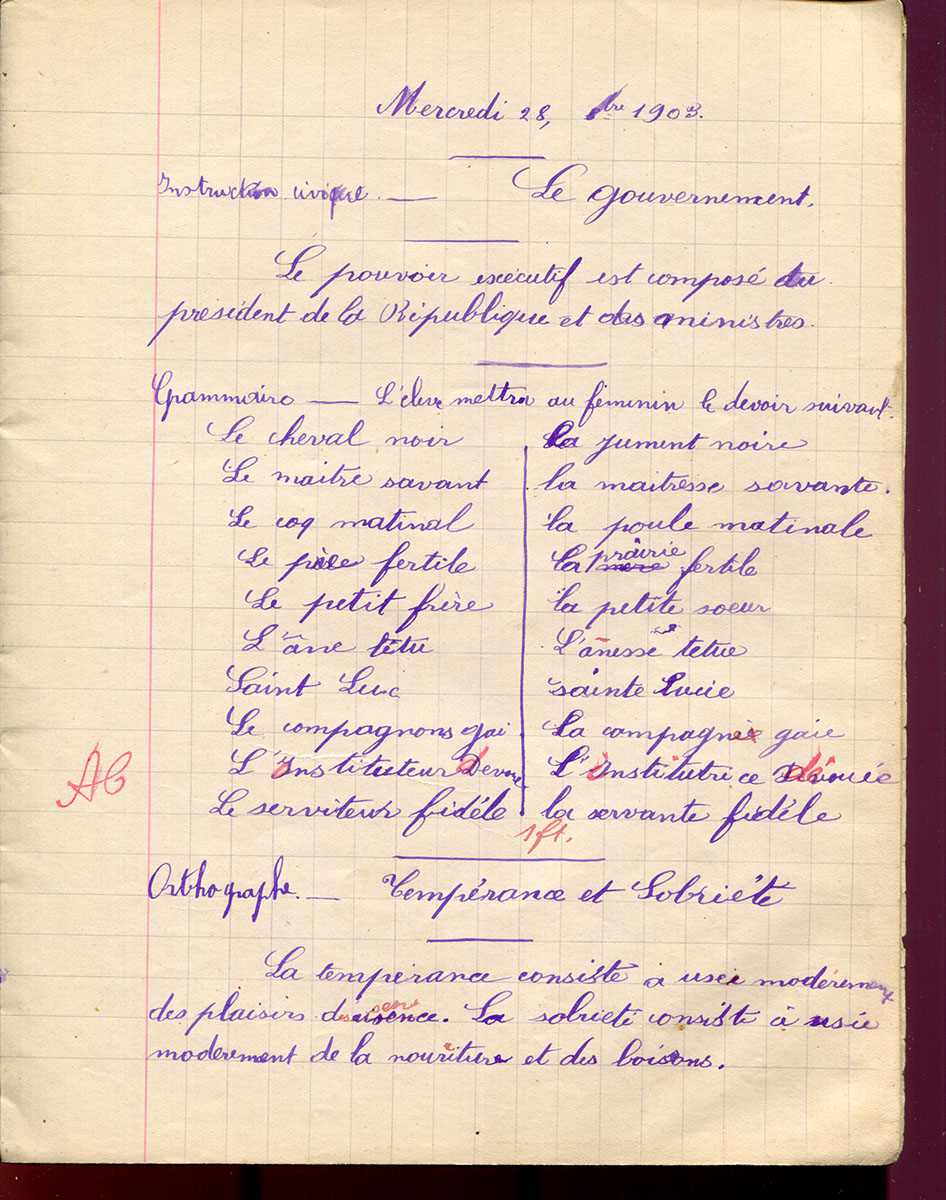 Mercredi 28, bre 1903.
Instruction civique. — Le gouvernement.
Le pouvoir exécutif est composé du
président de la République et des ministres.
Grammaire — L'élève mettra au féminin le devoir suivant.
Le cheval noir la jument noire
Le maitre savant la maitresse savante.
Le coq matinal la poule matinale
Le fertile la prairie fertile
Le petit frère la petite soeur
L'âne têtu L'ânesse tetue
Saint Luc sainte Lucie
Le compagnons gai La compagnie gaie
AB L'instituteur devoué L'institutrice dévouée
Le serviteur fidéle la servante fidéle
1 ft.
Orthographe. — Tempérance et Sobriété
La tempérance consiste à user modérement
des plaisirs des sens. La sobrieté consiste à usée
moderement de la nouriture et des boisons.